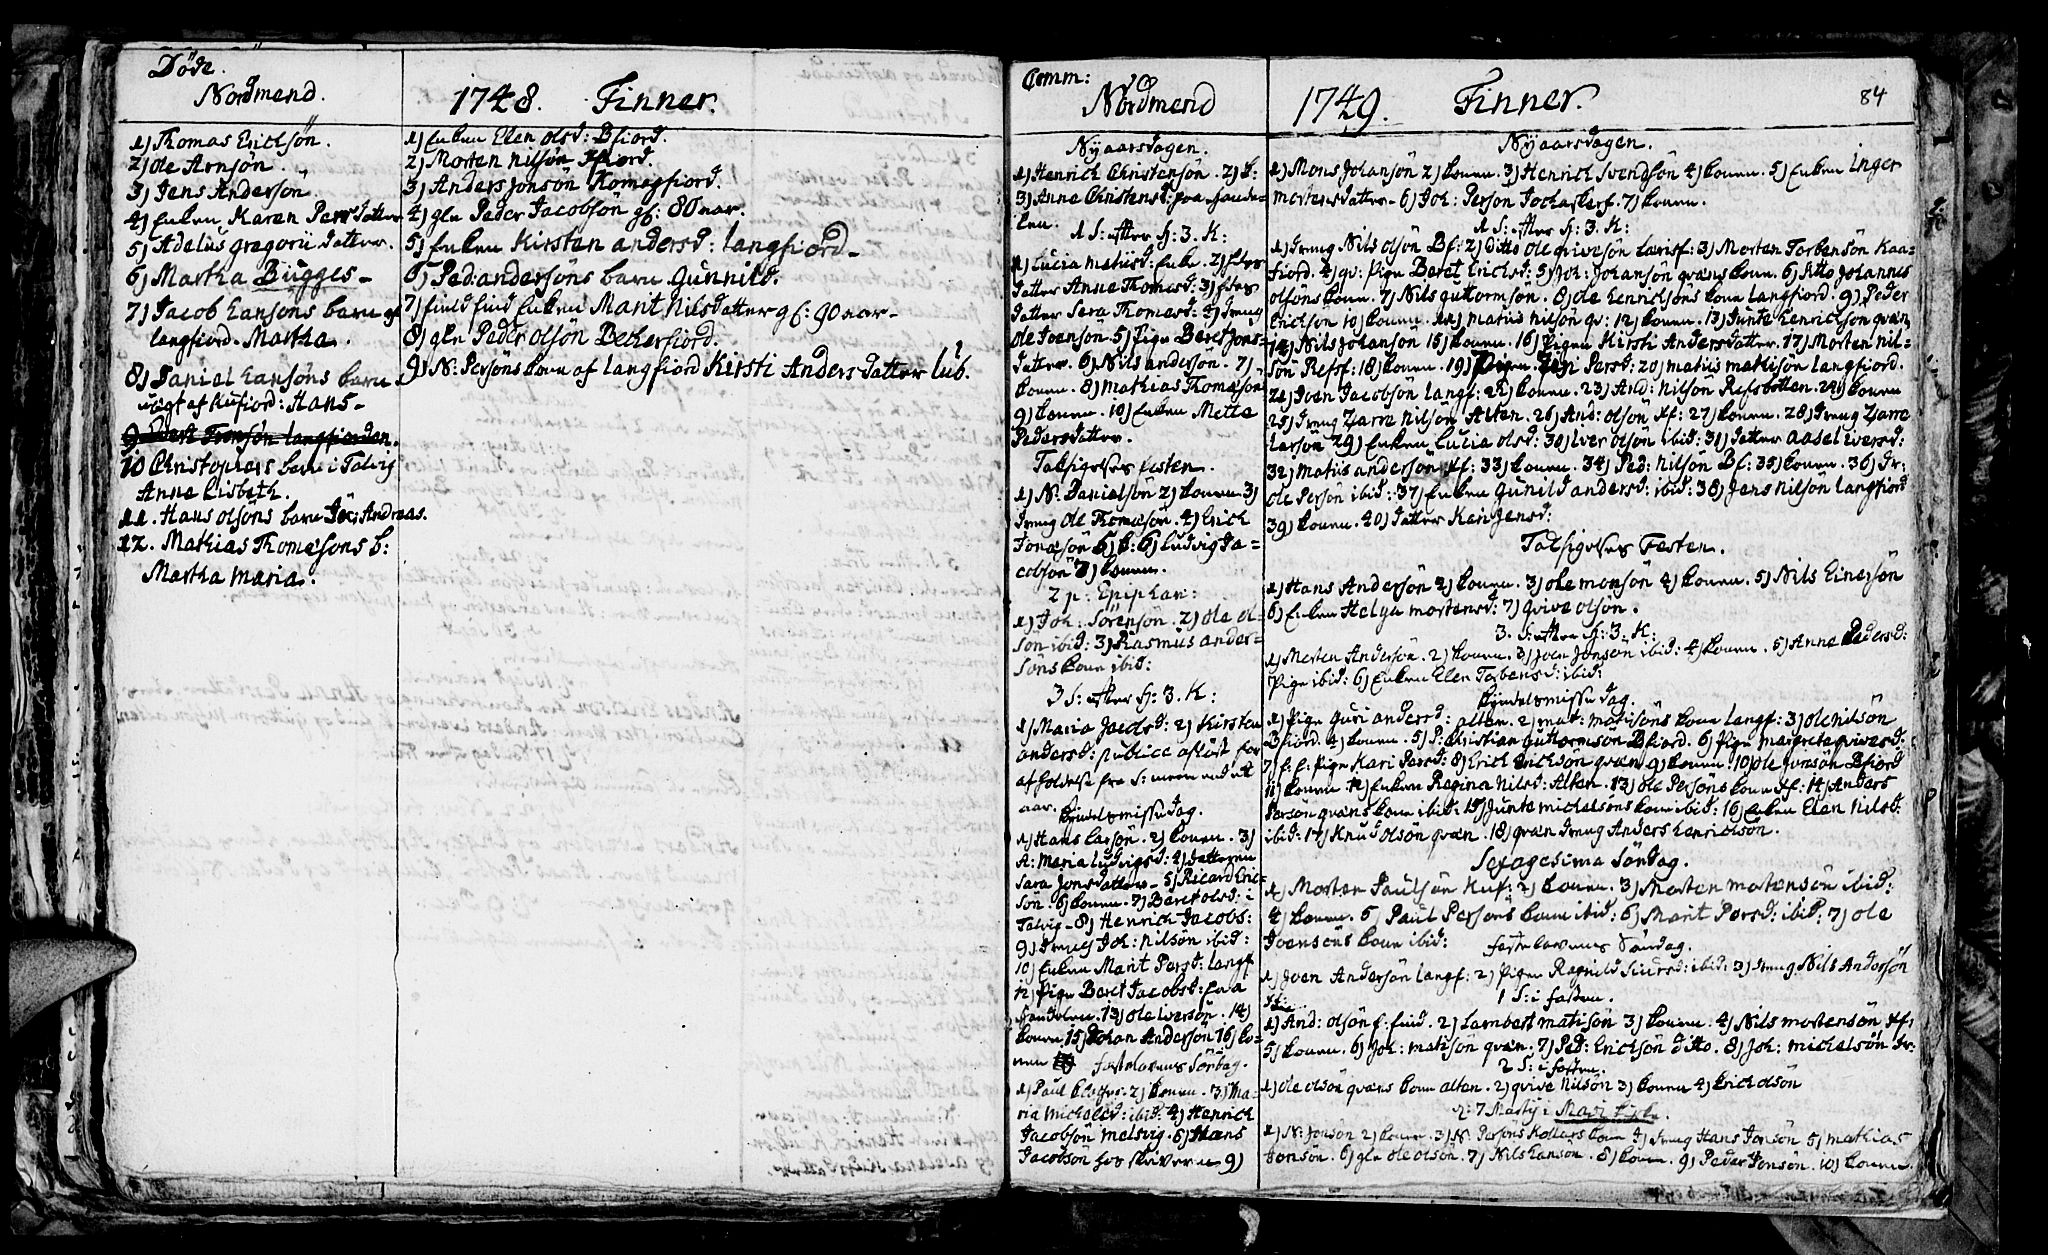 Døde.
Nordmend.
1748. Finner.
1) Thomas Erichsön.
2) Ole Arnsön.
3) Jens Andersön
4) Enken Karen Pers datter
5) Adelus gregorii datter.
6) Martha Bügges
7) Jacob Hansöns barn af
langfiord. Martha.
8) Daniel Hansöns barn
af Kufiord: Hans
langfiorden.
10 Christophers barn i Talvig
Anne Lisbeth.
11. Hans olsöns barn Andreas.
12. Mathias Thomesöns b:
Martha maria.
1) Enken Elen olsd: Bfiord.
2) Morten Nilsön
3) Anders Jonsön Komagfiord.
4) gln Peder Jacobsön gl: 80 aar.
5) Enken Kirsten andersd: langfiord
6) Ped: andersöns barn Gunnild.
7) find Enken Marit Nilsdatter gl: 90 aar
8) gln Peder olsön Beckerfiord.
9) N: Persöns kone af langfiord Kirsti Anders datter
Comm:
Nordmend
1749. Finner.
84
Nyaarsdagen.
1) Henrich Christensön. 2) k:
3) Anne Christensd:
1 S: efter H: 3. K:
1) Lucia matiisd: Enke. 2)
datter Anne Thomesd: 3)
datter Sara Thomasd: 4) Dreng
ole Joensön 5) Pige Beret Jons
datter. 6) Nils andersön. 7)
konen. 8) Mathias Thomesön
9) konen. 10) Enken Mette
Pedersdatter.
Taksigelses festen.
1) N: Danielsön 2) konen 3)
Dreng Ole Thomesön. 4) Erich
Jonasön 5) k: 6) Ludvig Ja=
cobsön 7) konen.
2 p: Epiphan:
1) Joh: Sörensön. 2) Ole ol=
sön ibid: 3) Rasmus ander=
söns kone ibid:
3 S: efter H: 3. K:
1) Maria 2) Kirsten
andersd: publice
aar. Kyndelsmissedag.
1) Hans Larsön. 2) konen. 3)
A: Maria Ludvigsd: 4) datteren
Sara Jonsdatter 5) Ricard Eric=
sön. 6) konen. 7) Beret olsd: i
Talvig 8) Henrich Jacobs:
9) Dreng Joh: Nilsön ibid:
10) Enken Marit Persd: langf
12) Pige Beret Jacobsd:
13) Ole Iversön. 14)
konen 15) Johan Andersön 16) ko=
nen fastelavens Söndag.
1) Paul 2) konen. 3) Ma=
ria michelsd: ibid: 4) Henrich
Jacobsön melsvig. 5) Hans
Jacobsön hos skriveren 9)
Nyaarsdagen.
1) Mons Johansön 2) konen. 3) Henrich Svendsön 4) konen. 5) Enken Inger
mortensdatter 6) Joh: Persön 7) konen.
1 S: efter H: 3. K:
1) Dreng Nils olsön Bf: 2) ditto ole qvivesön 3) Morten Torbensön Kaa=
fiord. 4) qv: Pige Beret Erichsd: 5) Joh: Johansön qvæns kone. 6) ditto Johannes
olsöns kone. 7) Nils guttormsön. 8) ole Henrichsöns kone langfiord. 9) Peder
Erichsön 10) konen. 11) matiis nilsön qv: 12) konen. 13) Junte Henrichsön qvæn
14) Nils Johansön 15) konen. 16) Pigen Kirsti Andersdatter. 17) Morten nil=
sön Refsf: 18) konen. 19) Pigen Persd: 20) matiis mathisön langfiord.
21) Joen Jacobsön langf: 22) konen. 23) And: Nilsön Refsbotten. 24) konen
25) Dreng Nilsön Alten. 26) And: olsön 27) konen. 28) Dreng
Larsön 29) Enken Lucia olsd: 30) Iver olsön ibid: 31) datter Aasel Iversd:
32) Matiis andersön 33) konen. 34) Ped: Nilsön Bf: 35) konen. 36) Dr:
ole Persön ibid: 37) Enken Gunild andersd: ibid: 38) Jens Nilsön langfiord
39) konen. 40) datter Kari Jensd:
Taksigelses Festen.
1) Hans Andersön 2) konen. 3) ole monsön 4) konen. 5) Nils Einersön
6) Enken Helga mortensd: 7) qvive olsön.
3. S: efter H: 3. K:
1) Morten Andersön. 2) konen. 3) Joen Jonsön ibid: 4) konen. 5) Anne Pedersd:
Pige ibid: 6) Enken Elen Torbensd: ibid:
Kyndelsmisse dag.
1) Pige Guri andersd: alten. 2) mat: matisöns kone langf: 3) ole nilsön
Bfiord. 4) konen. 5) P: Christian guttormsön Bfiord. 6) Pige margrete qvivesd:
7) Pige Kari Persd: 8) Erich Erichsön qvæn 9) konen. 10) ole Jonsön Bfiord
11) konen. 12) Enken Regina Nilsd: Alten. 13) ole Persöns kone 14) Anders
Persön qvæns kone ibid: 15) Junte michelsöns kone ibid: 16) Enken Elen Nilsd:
ibid: 17) Knud olsön qvæn. 18) qvæn Dreng Anders Henrichsön.
Sexagesima Söndag.
1) Morten Paulsön Kuf: 2) konen. 3) Morten mortensön ibid:
4) konen. 5) Paul Persöns kone ibid: 6) Marit Persd: ibid: 7) ole
Joensöns kone ibid: fastelavens Söndag.
1) Joen Andersön langf: 2) Pigen Ragnild ibid: 3) Dreng Nils Andersön
1 S: i fasten.
1) And: olsön 2) Lambert matisön 3) konen. 4) Nils mortensön
5) konen. 6) Joh: matisön qvæn. 7) Ped: Erichsön ditto. 8) Joh: michelsön
2 S: i fasten.
1) ole olsön qvæns kone alten. 2) qvive Nilsön 3) konen 4) Erich olsön
1) N: Jonsön 2) konen. 3) N: Persöns kone 4) Dreng Hans Jonsön 5) Mathias
Jonsön. 6) gln ole olsön. 7) Nils Hansön. 8) konen. 9) Peder Jonsön. 10) konen.